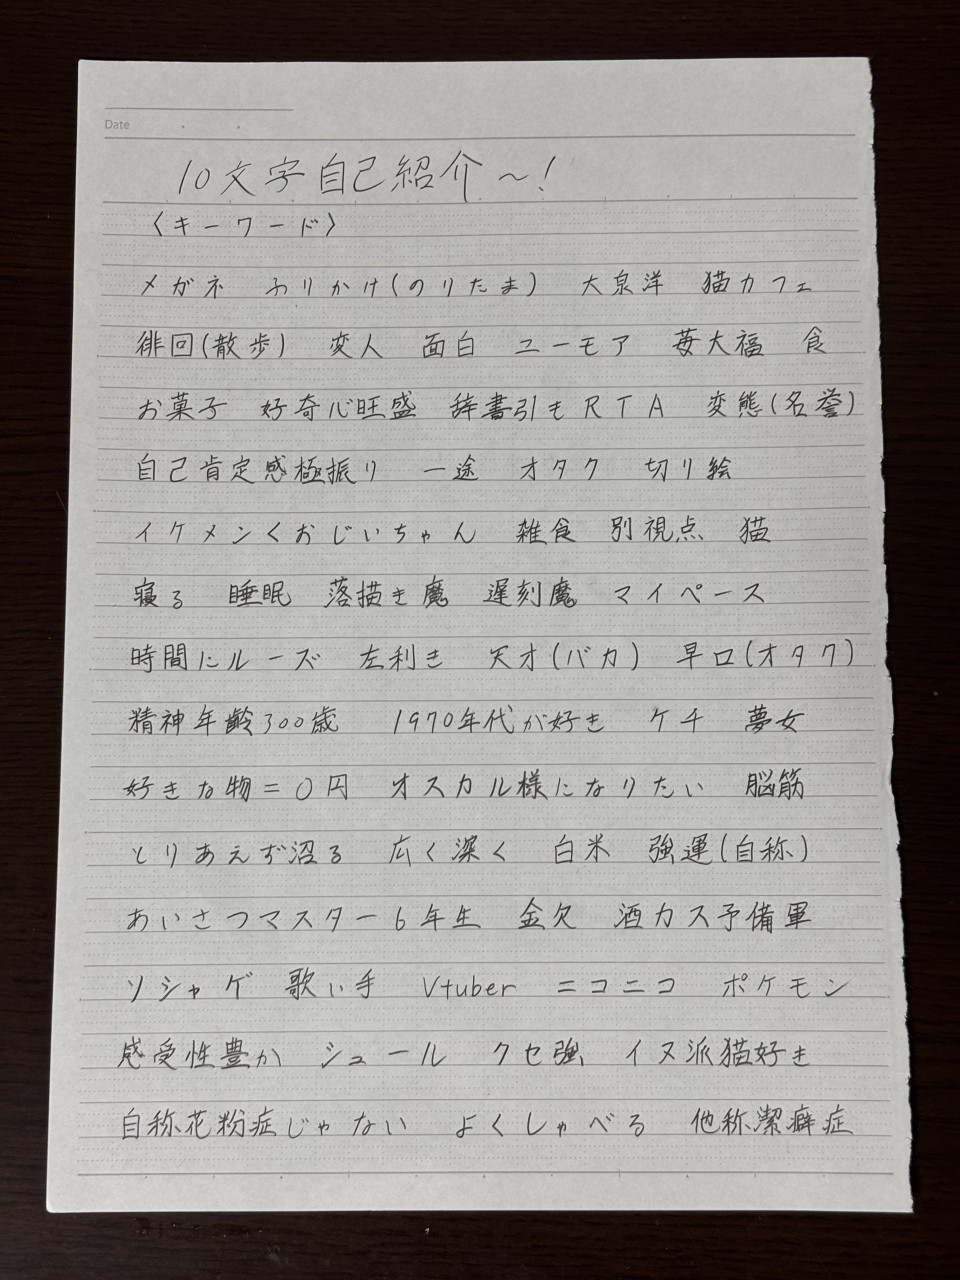 Date
10文字自己紹介〜!
〈キーワード〉
メガネ ふりかけ(のりたま) 大泉洋 猫カフェ
徘回(散歩) 変人 面白 ユーモア 苺大福 食
お菓子 好奇心旺盛 辞書引もRTA 変態(名誉)
自己肯定感極振り 一途 オタク 切り絵
イケメンくおじいちゃん 雑食 別視点 猫
寝る 睡眠 落描き魔 遅刻魔 マイペース
時間にルーズ 左利き 天才(バカ) 早口(オタク)
精神年齢300歳 1970年代が好き ケチ 夢女
好きな物=0円 オスカル様になりたい 脳筋
とりあえず沼る 広く深く 白米 強運(自称)
あいさつマスター6年生 金欠 酒カス予備軍
ソシャゲ 歌い手 Vtuber ニコニコ ポケモン
感受性豊か シュール クセ強 イヌ派猫好き
自称花粉症じゃない よくしゃべる 他称潔癖症